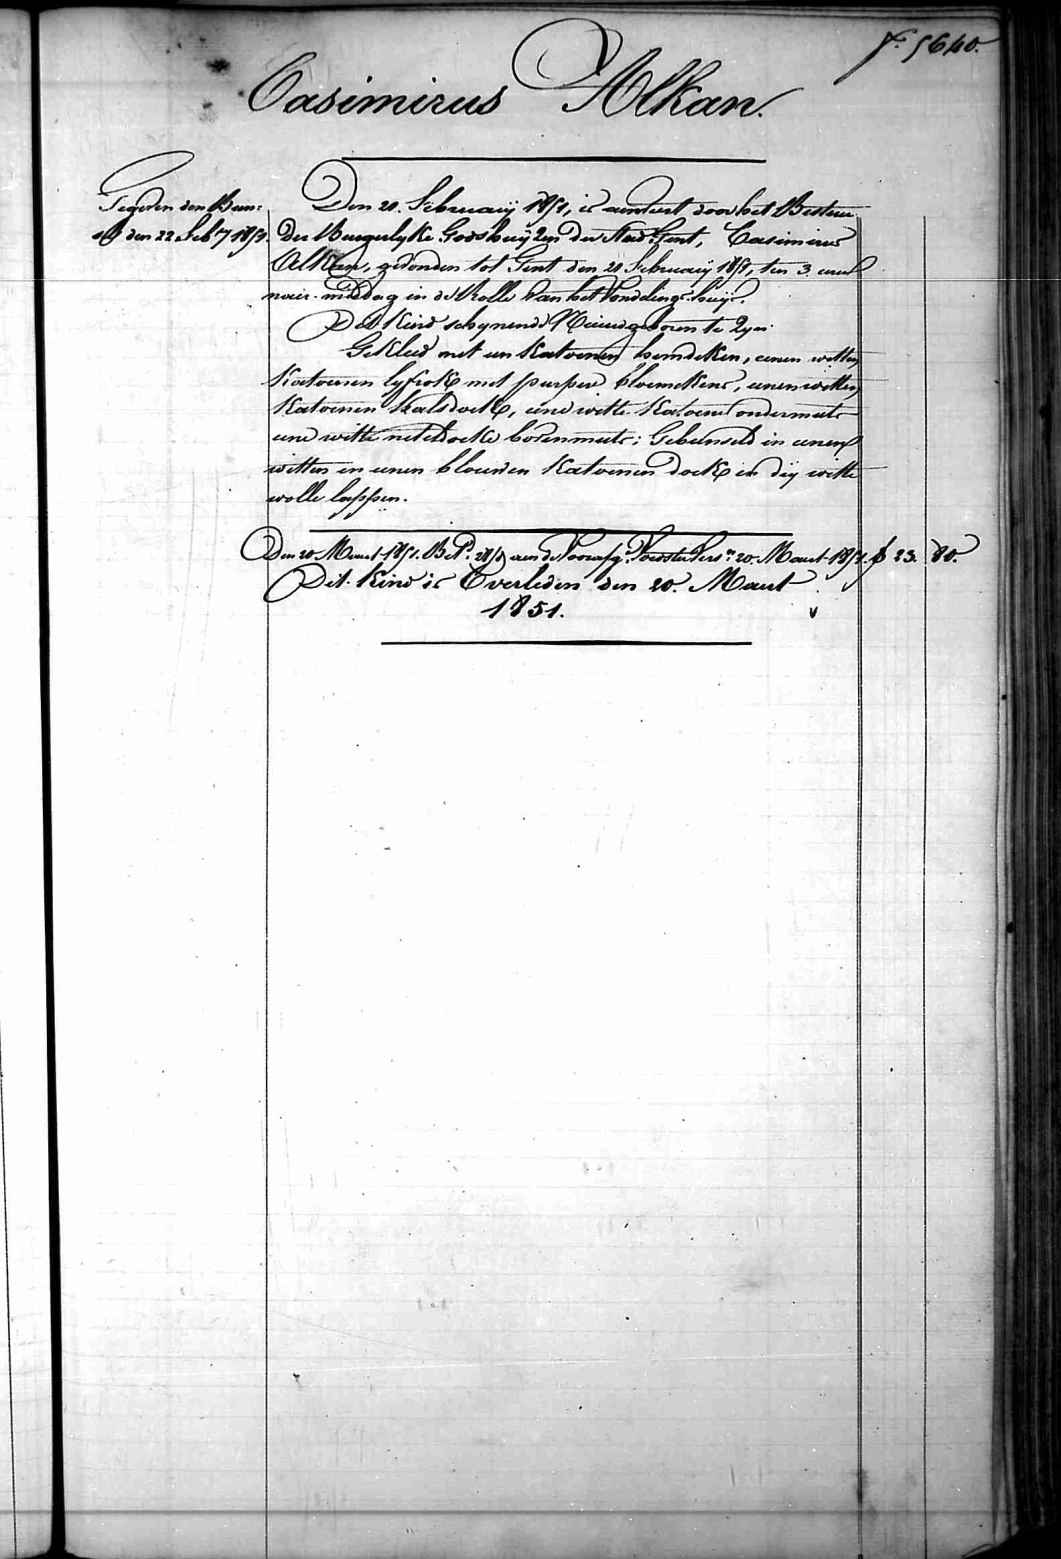 f.º 5640.
Casimirus Alkan.
Tegeven den Ban:
den 22 Feb.ry 1851.
Den 21. Februarij 1851, is aenveert door het Bestuer
der Burgerlyke Godshuijzen der Stad Gent, Casimirus
Alkan, gevonden tot Gent den 21 Februarij 1851, ten 3. uren
naer-middag in de Rolle van het Vondelings-huijs.
Dit Kind schynende Nieuwgeboren te Zyn.
Gekleed met een Katoenen hemdeken, eenen witten
Katoenen lyfrok met purpere bloemekens, eenen witten
Katoenen halsdoek, eene witte Katoene ondermuts
eene witte neteldoeke bovenmuts; Gebunseld in eenen
witten en eenen blauwen Katoenen doek en dry witte
wolle lappen.
Den 20 Maert 1851. Bet.d aen de Voorafg. Voedsters 20. Maert 1851. f 23. 80.
Dit Kind is Overleden den 20. Maert
1851.